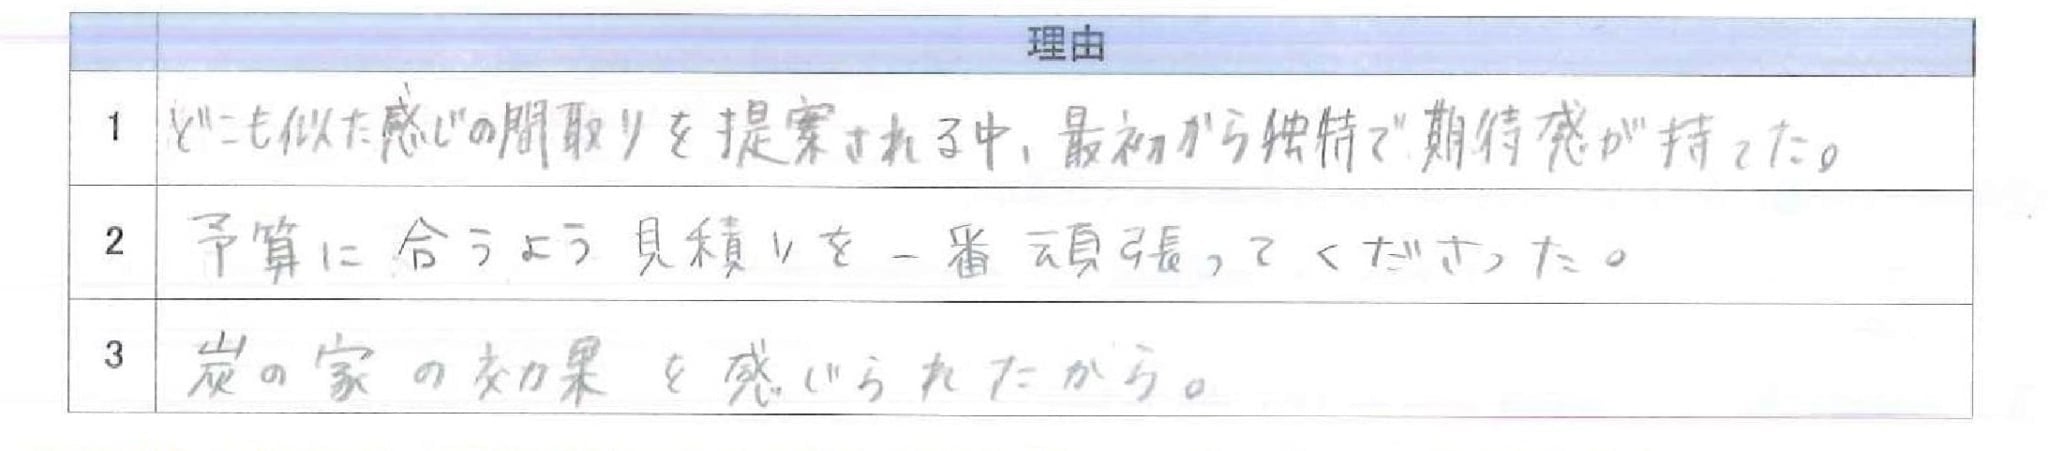 理由
1 どこも似た感じの間取りを提案される中、最初から独特で期待感が持てた。
2 予算に合うよう見積りを一番頑張ってくださった。
3 炭の家の効果を感じられたから。